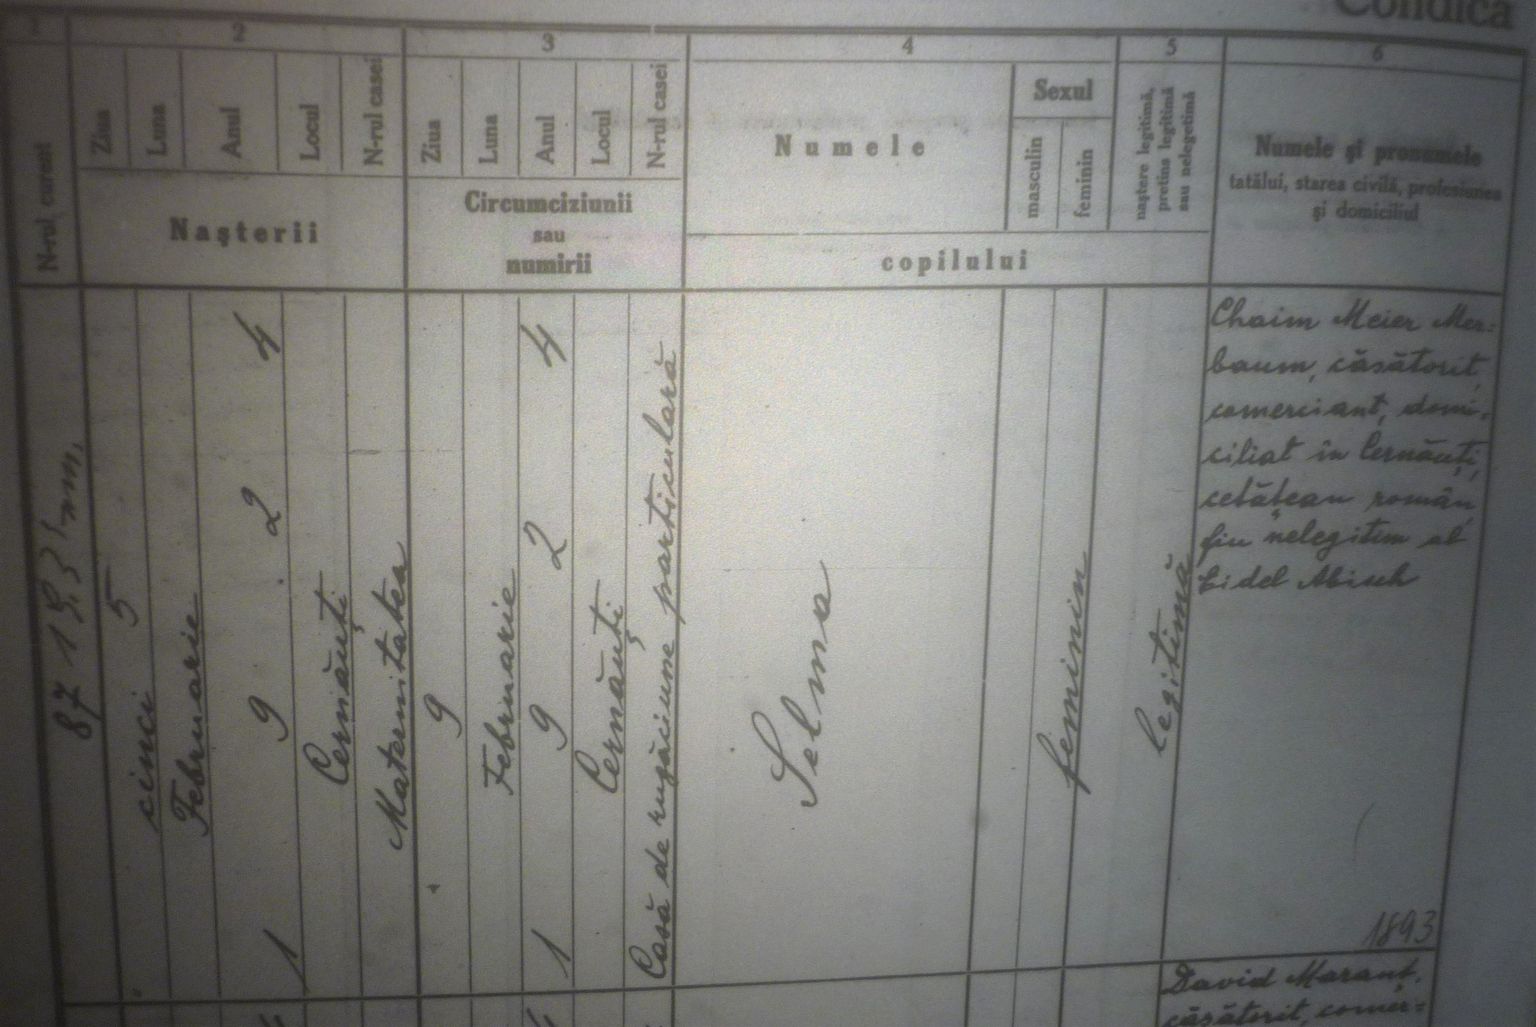 Condica
1
2
3
4
5
6
N-rul curent
Ziua
Luna
Anul
Locul
N-rul casei
Nașterii
Ziua
Luna
Anul
Locul
N-rul casei
Circumciziunii
sau
numirii
Numele
Sexul
masculin
feminin
copilului
naștere legitimă,
pretins legitimă
sau nelegetimă
Numele și pronumele
tatălui, starea civilă, profesiunea
și domiciliul
87
cinci 5
Februarie
1 9 2 4
Cernăuți
Maternitatea
9
Februarie
1 9 2 4
Cernăuți
Casă de rugăciune particulară
Selma
feminin
legitimă
Chaim Meier Mer=
baum, căsătorit,
comerciant, domi-
ciliat în Cernăuți,
cetățean român,
fiu nelegitim al
Eidel Abisch
1893
David Maranț,
căsătorit, comer=